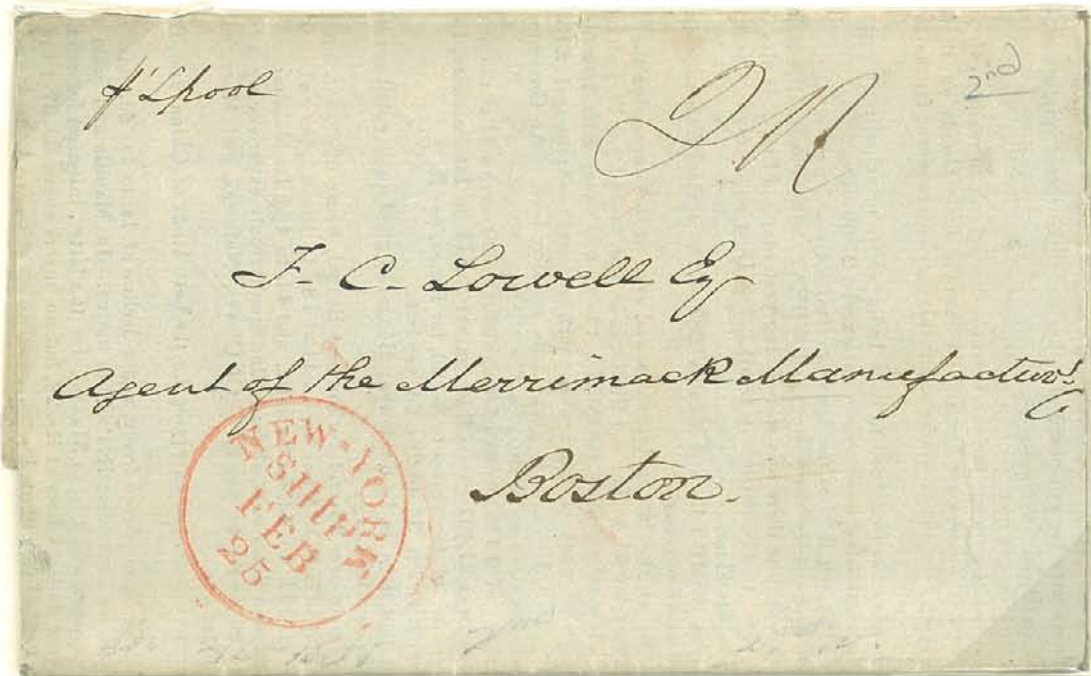 p Lpool
2nd
F. C. Lowell Esq
Agent of the Merrimack Manufactury
Boston.
NEW-YORK
SHIP
FEB
25